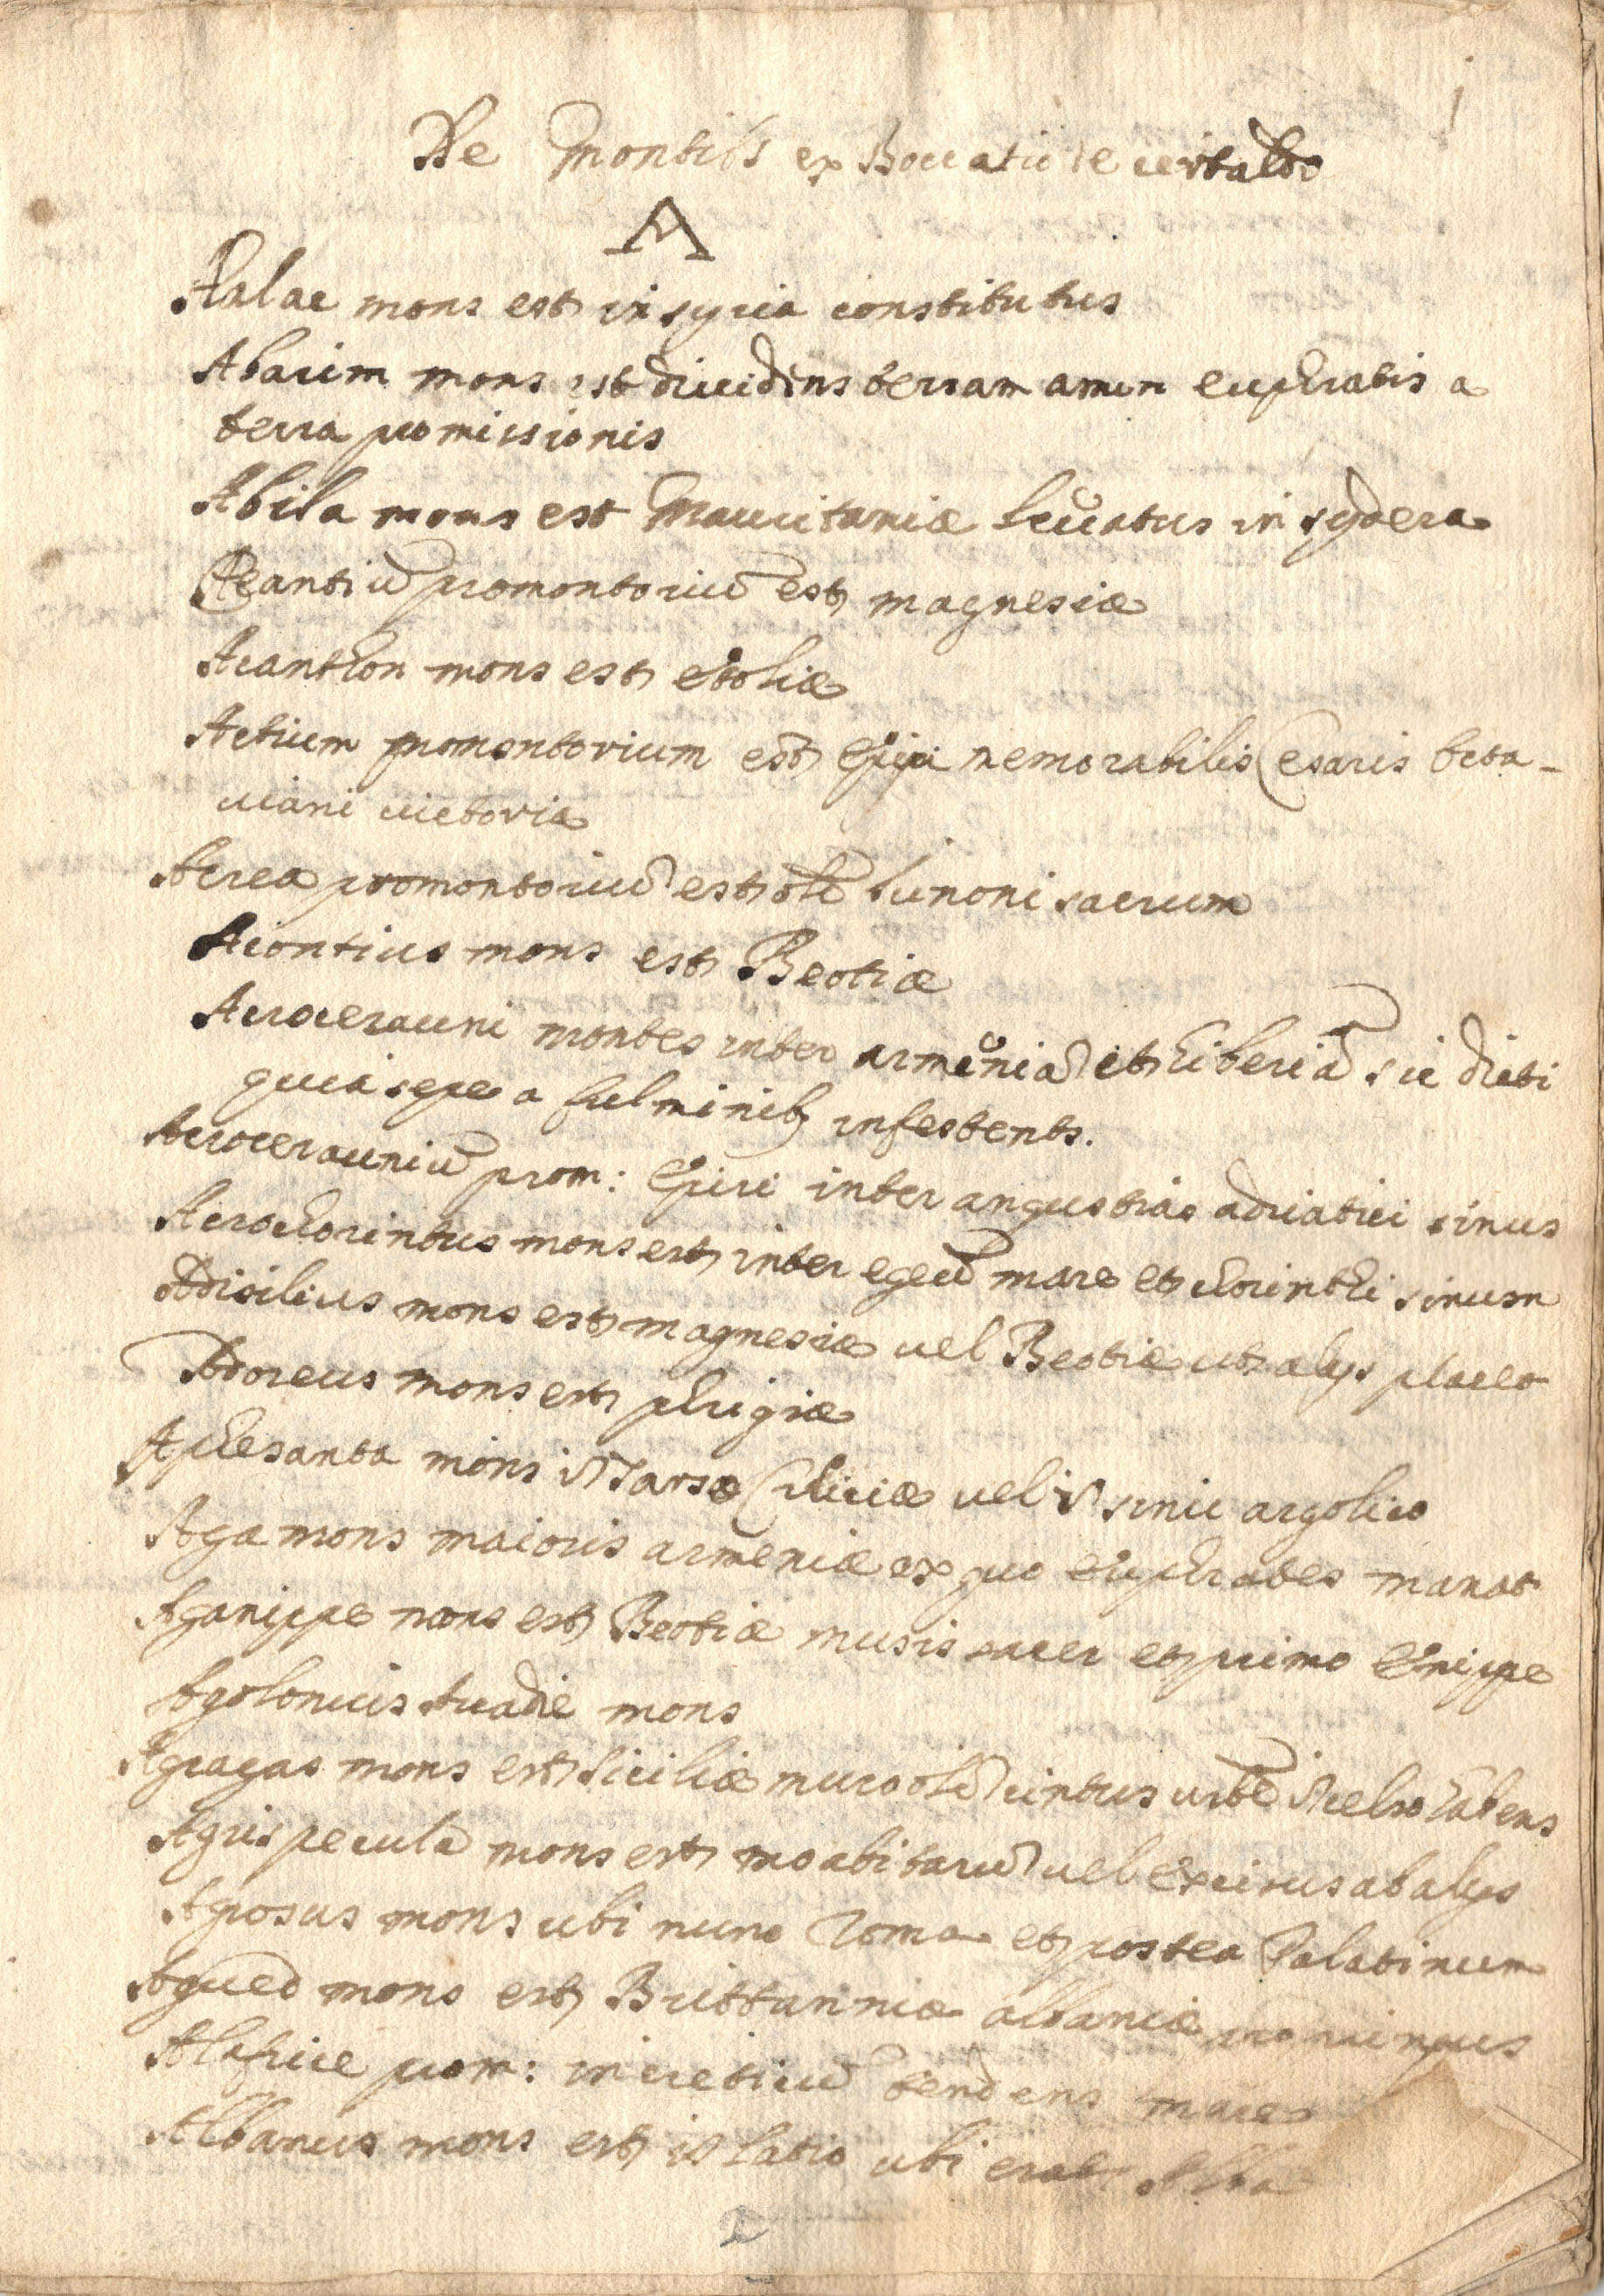 De Montibs ex Boccatio de certaldo
1
A
Aalac mons est in syria constitutus
Abarim mons est diuidens terram amon euphratis a
terra promissionis
Abila mons est Mauritaniæ leuatus in sydera
Aeantiū promontoriū est magnesiæ
Acanthon mons est etoliæ
Actium promontorium est epiri memorabilis Cesaris octa-
uiani uictoria
Acrea promontoriū est olī Iunoni sacrum
Acontius mons est Beotiæ
Acrocerauni montes inter armeniā et hiberiā sic dicti
quia sepe a fulminibꝫ infestents.
Acrocerauniū prom: epiri inter angustias adriatici sinus
Acrochorintus mons est inter egeū mare et chorinthi sinum
Adisilius mons est magnesiæ uel Beotiæ ut alys placet
Adoreus mons est phrigiæ
Aphesanta mons ī Tarsæ Ciliciæ uel ī sinu argolico
Aga mons maioris armeniæ ex quo euphrates manat
Aganippe mons est Beotiæ musis sacer et primo Enippe
Agolonicis Iuadie mons
Agragas mons est Siciliæ muro olī cintus urbē ī celso habens
Agrispecula mons est moabitarū uel Excirus ab alys
Agrosus mons ubi nunc Roma et postea Palatinum
Agned mons est Brittanniæ albaniæ
Alafrice prom: in creticū tendens mare
Albanus mons est ī latio ubi erat Alba
1